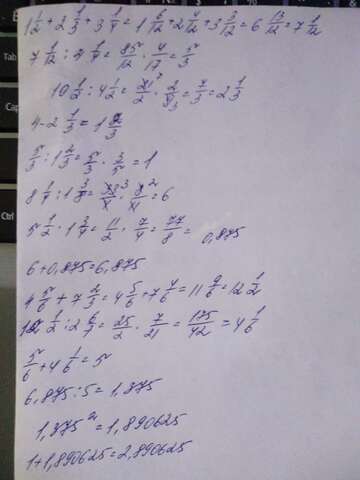 1 1/2 + 2 1/3 + 3 1/4 = 1 6/12 + 2 4/12 + 3 3/12 = 6 13/12 = 7 1/12
7 1/12 : 4 1/4 = 85/12 · 4/17 = 5/3
10 1/2 : 4 1/2 = 21/2 · 2/9 = 7/3 = 2 1/3
4 - 2 1/3 = 1 2/3
5/3 : 1 2/3 = 5/3 · 3/5 = 1
8 1/4 : 1 3/8 = 33/4 · 8/11 = 6
5 1/2 : 1 3/4 = 11/2 · 7/4 = 77/8 = 0,875
6+0,875=6,875
4 5/6 + 7 2/3 = 4 5/6 + 7 4/6 = 11 9/6 = 12 1/2
12 1/2 : 2 6/7 = 25/2 · 7/21 = 175/42 = 4 1/6
5/6 + 4 1/6 = 5
6,875:5=1,375
1,375² = 1,890625
1+1,890625=2,890625
Caps
Ctrl